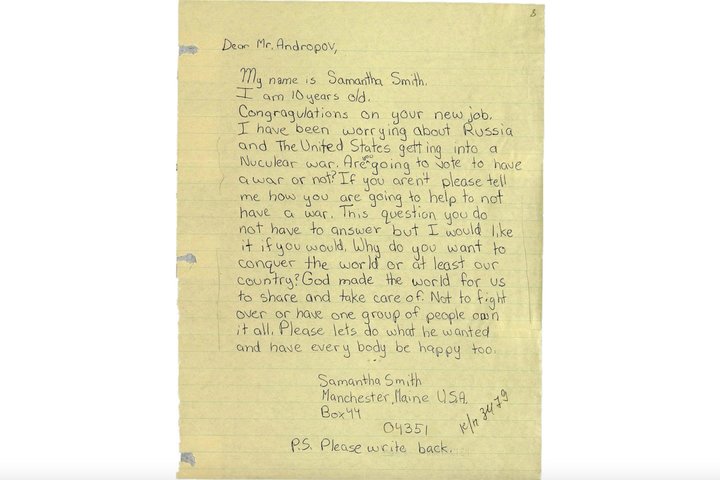 Dear Mr. Andropov,
My name is Samantha Smith.
I am 10 years old.
Congragulations on your new job.
I have been worrying about Russia
and The United States getting into a
Nuculear war. Are you going to vote to have
a war or not? If you aren't please tell
me how you are going to help to not
have a war. This question you do
not have to answer but I would like
it if you would. Why do you want to
conquer the world or at least our
country? God made the world for us
to share and take care of. Not to fight
over or have one group of people own
it all. Please lets do what he wanted
and have every body be happy too.
Samantha Smith
Manchester, Maine U.S.A.
Box 44
04351
P.S. Please write back.